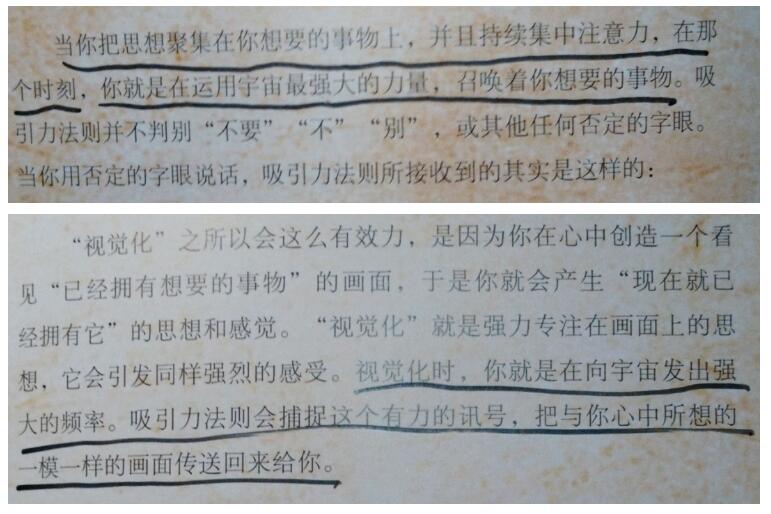 当你把思想聚集在你想要的事物上，并且持续集中注意力，在那
个时刻，你就是在运用宇宙最强大的力量，召唤着你想要的事物。吸
引力法则并不判别“不要”“不”“别”，或其他任何否定的字眼。
当你用否定的字眼说话，吸引力法则所接收到的其实是这样的：
“视觉化”之所以会这么有效力，是因为你在心中创造一个看
见“已经拥有想要的事物”的画面，于是你就会产生“现在就已
经拥有它”的思想和感觉。“视觉化”就是强力专注在画面上的思
想，它会引发同样强烈的感受。视觉化时，你就是在向宇宙发出强
大的频率。吸引力法则会捕捉这个有力的讯号，把与你心中所想的
一模一样的画面传送回来给你。